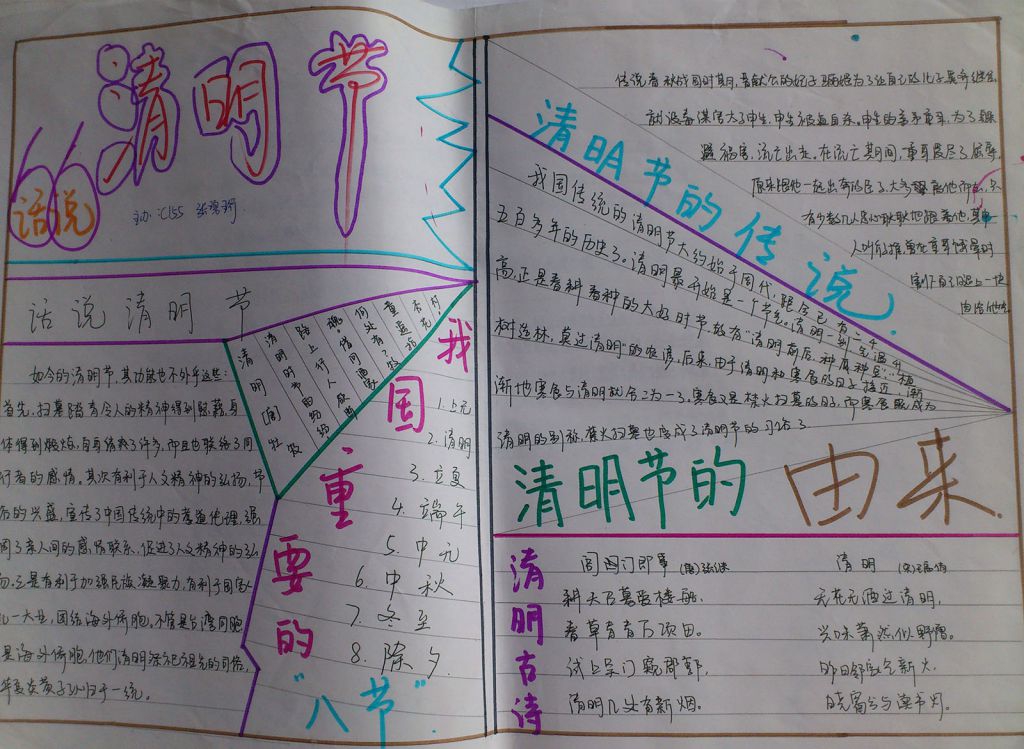 清明节
话说
主办:C155
话说清明节
如今的清明节,其功能也不外乎这些:
首先,扫墓踏青令人的精神得到
体得到锻炼,自身情操了许多,而且也联络了同
行者的感情。其次有利于人文精神的弘扬,节
的兴盛,宣传了中国传统中的孝道伦理,强
了亲人间的感情联系,促进了人文精神的弘
三是有利于加强民族凝聚力,有利于国家
一大业,团结海外侨胞,不管是台湾同胞
是海外侨胞,他们清明祭祀祖先的习俗,
炎黄子归于一统。
清明(唐)杜牧
清明时节雨纷纷
路上行人欲断
魂。借问酒家
何处有?牧
童遥指
杏花
村。
我国重要的“八节”
1.上元
2.清明
3.立夏
4.端午
5.中元
6.中秋
7.冬至
8.除夕
清明节的传说
传说春秋战国时期,晋献公的妃子骊姬为了让自己的儿子奚齐继位,
就设毒谋害太子申生,申生被逼自杀。申生的弟弟重耳,为了躲
避祸害,流亡出走。在流亡期间,重耳受尽了屈辱。
原来跟他一起出奔的臣子,大多
有少数几人忠心耿耿地跟着他,其中一
人叫介子推。
割下自己腿上一块
肉给他吃
我国传统的清明节大约始于周代,距今已有二千
五百多年的历史了。清明最开始是一个节气。清明一到,气温升
高,正是春耕春种的大好时节,故有“清明前后,种瓜种豆”。“植
树造林,莫过清明”的农谚,后来,由于清明和寒食的日子接近,渐
渐地寒食与清明就合二为一了,寒食又是禁火扫墓的日子,即寒食既成为
清明的别称,禁火扫墓也变成了清明节的习俗了
清明节的由来
清明古诗
阊阖门即事 (唐)张继
耕夫占募逐楼船,
春草青青万顷田。
试上吴门窥郡郭,
清明几处有新烟。
清明 (宋)王禹偁
无花无酒过清明,
兴味萧然似野僧。
昨日邻家乞新火,
晓窗分与读书灯。